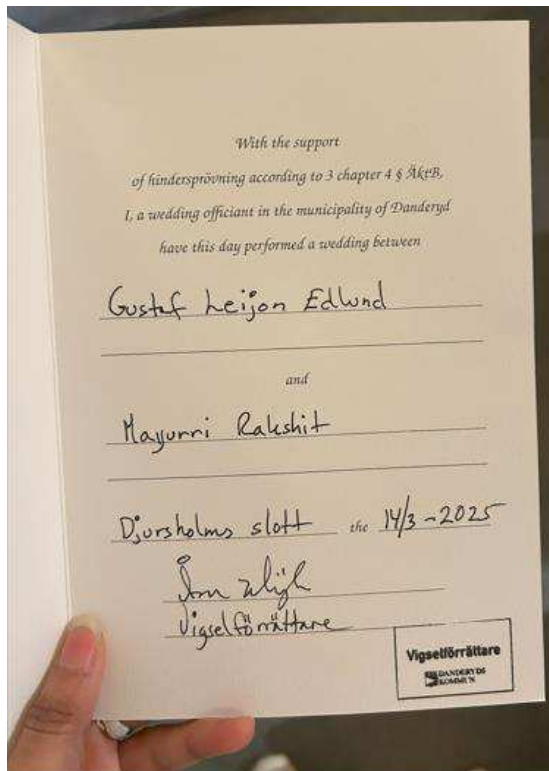 With the support
of hindersprövning according to 3 chapter 4 § ÄktB,
I, a wedding officiant in the municipality of Danderyd
have this day performed a wedding between
Gustaf Leijon Edlund
and
Mayurri Rakshit
Djursholms slott the 14/3-2025
Vigselförrättare
Vigselförrättare
DANDERYDS
KOMMUN